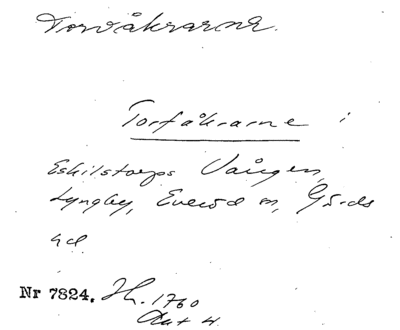 Torvåkrarna.
Torfåkrarne i
Eskilstorps Vången,
Lyngby, Everöd m, Gärds
hd
Nr 7824. Jh. 1760
Akt 4.